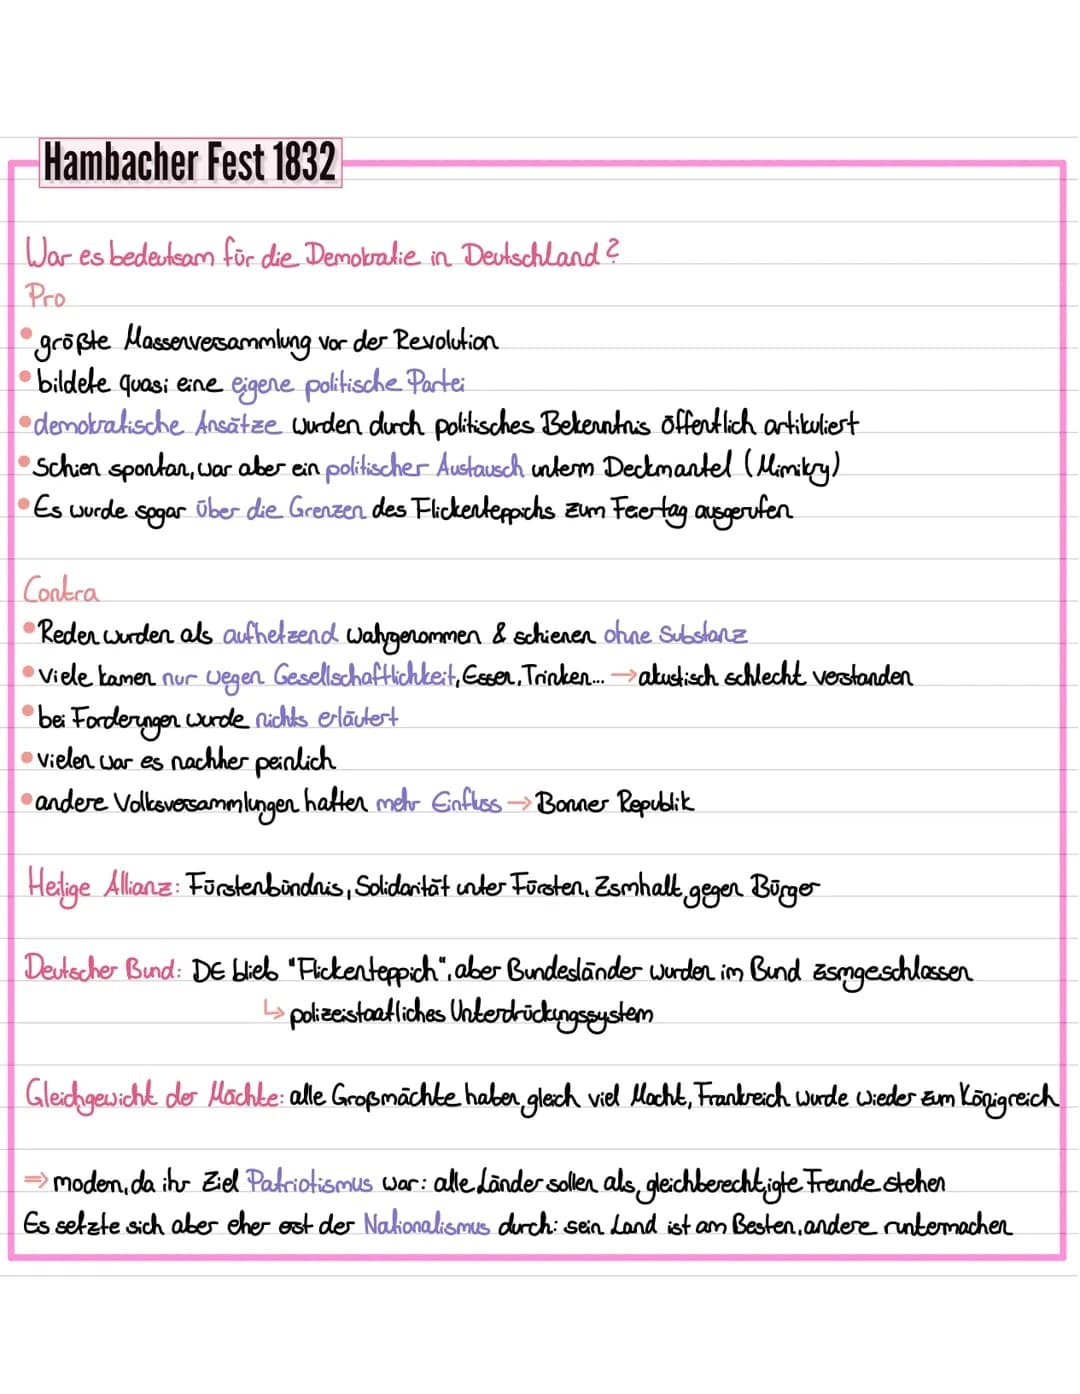 Hambacher Fest 1832
War es bedeutsam für die Demokratie in Deutschland?
Pro
• größte Massenversammlung vor der Revolution
• bildete quasi eine eigene politische Partei
• demokratische Ansätze wurden durch politisches Bekenntnis öffentlich artikuliert
• Schien spontan, war aber ein politischer Austausch unterm Deckmantel (Mimikry)
• Es wurde sogar über die Grenzen des Flickenteppichs zum Feiertag ausgerufen
Contra
• Reden wurden als aufhetzend wahrgenommen & schienen ohne Substanz
• viele kamen nur wegen Gesellschaftlichkeit, Essen, Trinken... → akustisch schlecht verstanden
• bei Forderungen wurde nichts erläutert
• vielen war es nachher peinlich
• andere Volksversammlungen hatten mehr Einfluss → Bonner Republik
Heilige Allianz: Fürstenbündnis, Solidarität unter Fürsten, Zsmhalt gegen Bürger
Deutscher Bund: DE blieb "Flickenteppich", aber Bundesländer wurden im Bund zsmgeschlossen
↳ polizeistaatliches Unterdrückungssystem
Gleichgewicht der Mächte: alle Großmächte haben gleich viel Macht, Frankreich wurde wieder zum Königreich
⇒ modern, da ihr Ziel Patriotismus war: alle Länder sollen als gleichberechtigte Freunde stehen
Es setzte sich aber eher erst der Nationalismus durch: sein Land ist am Besten, andere runtermachen